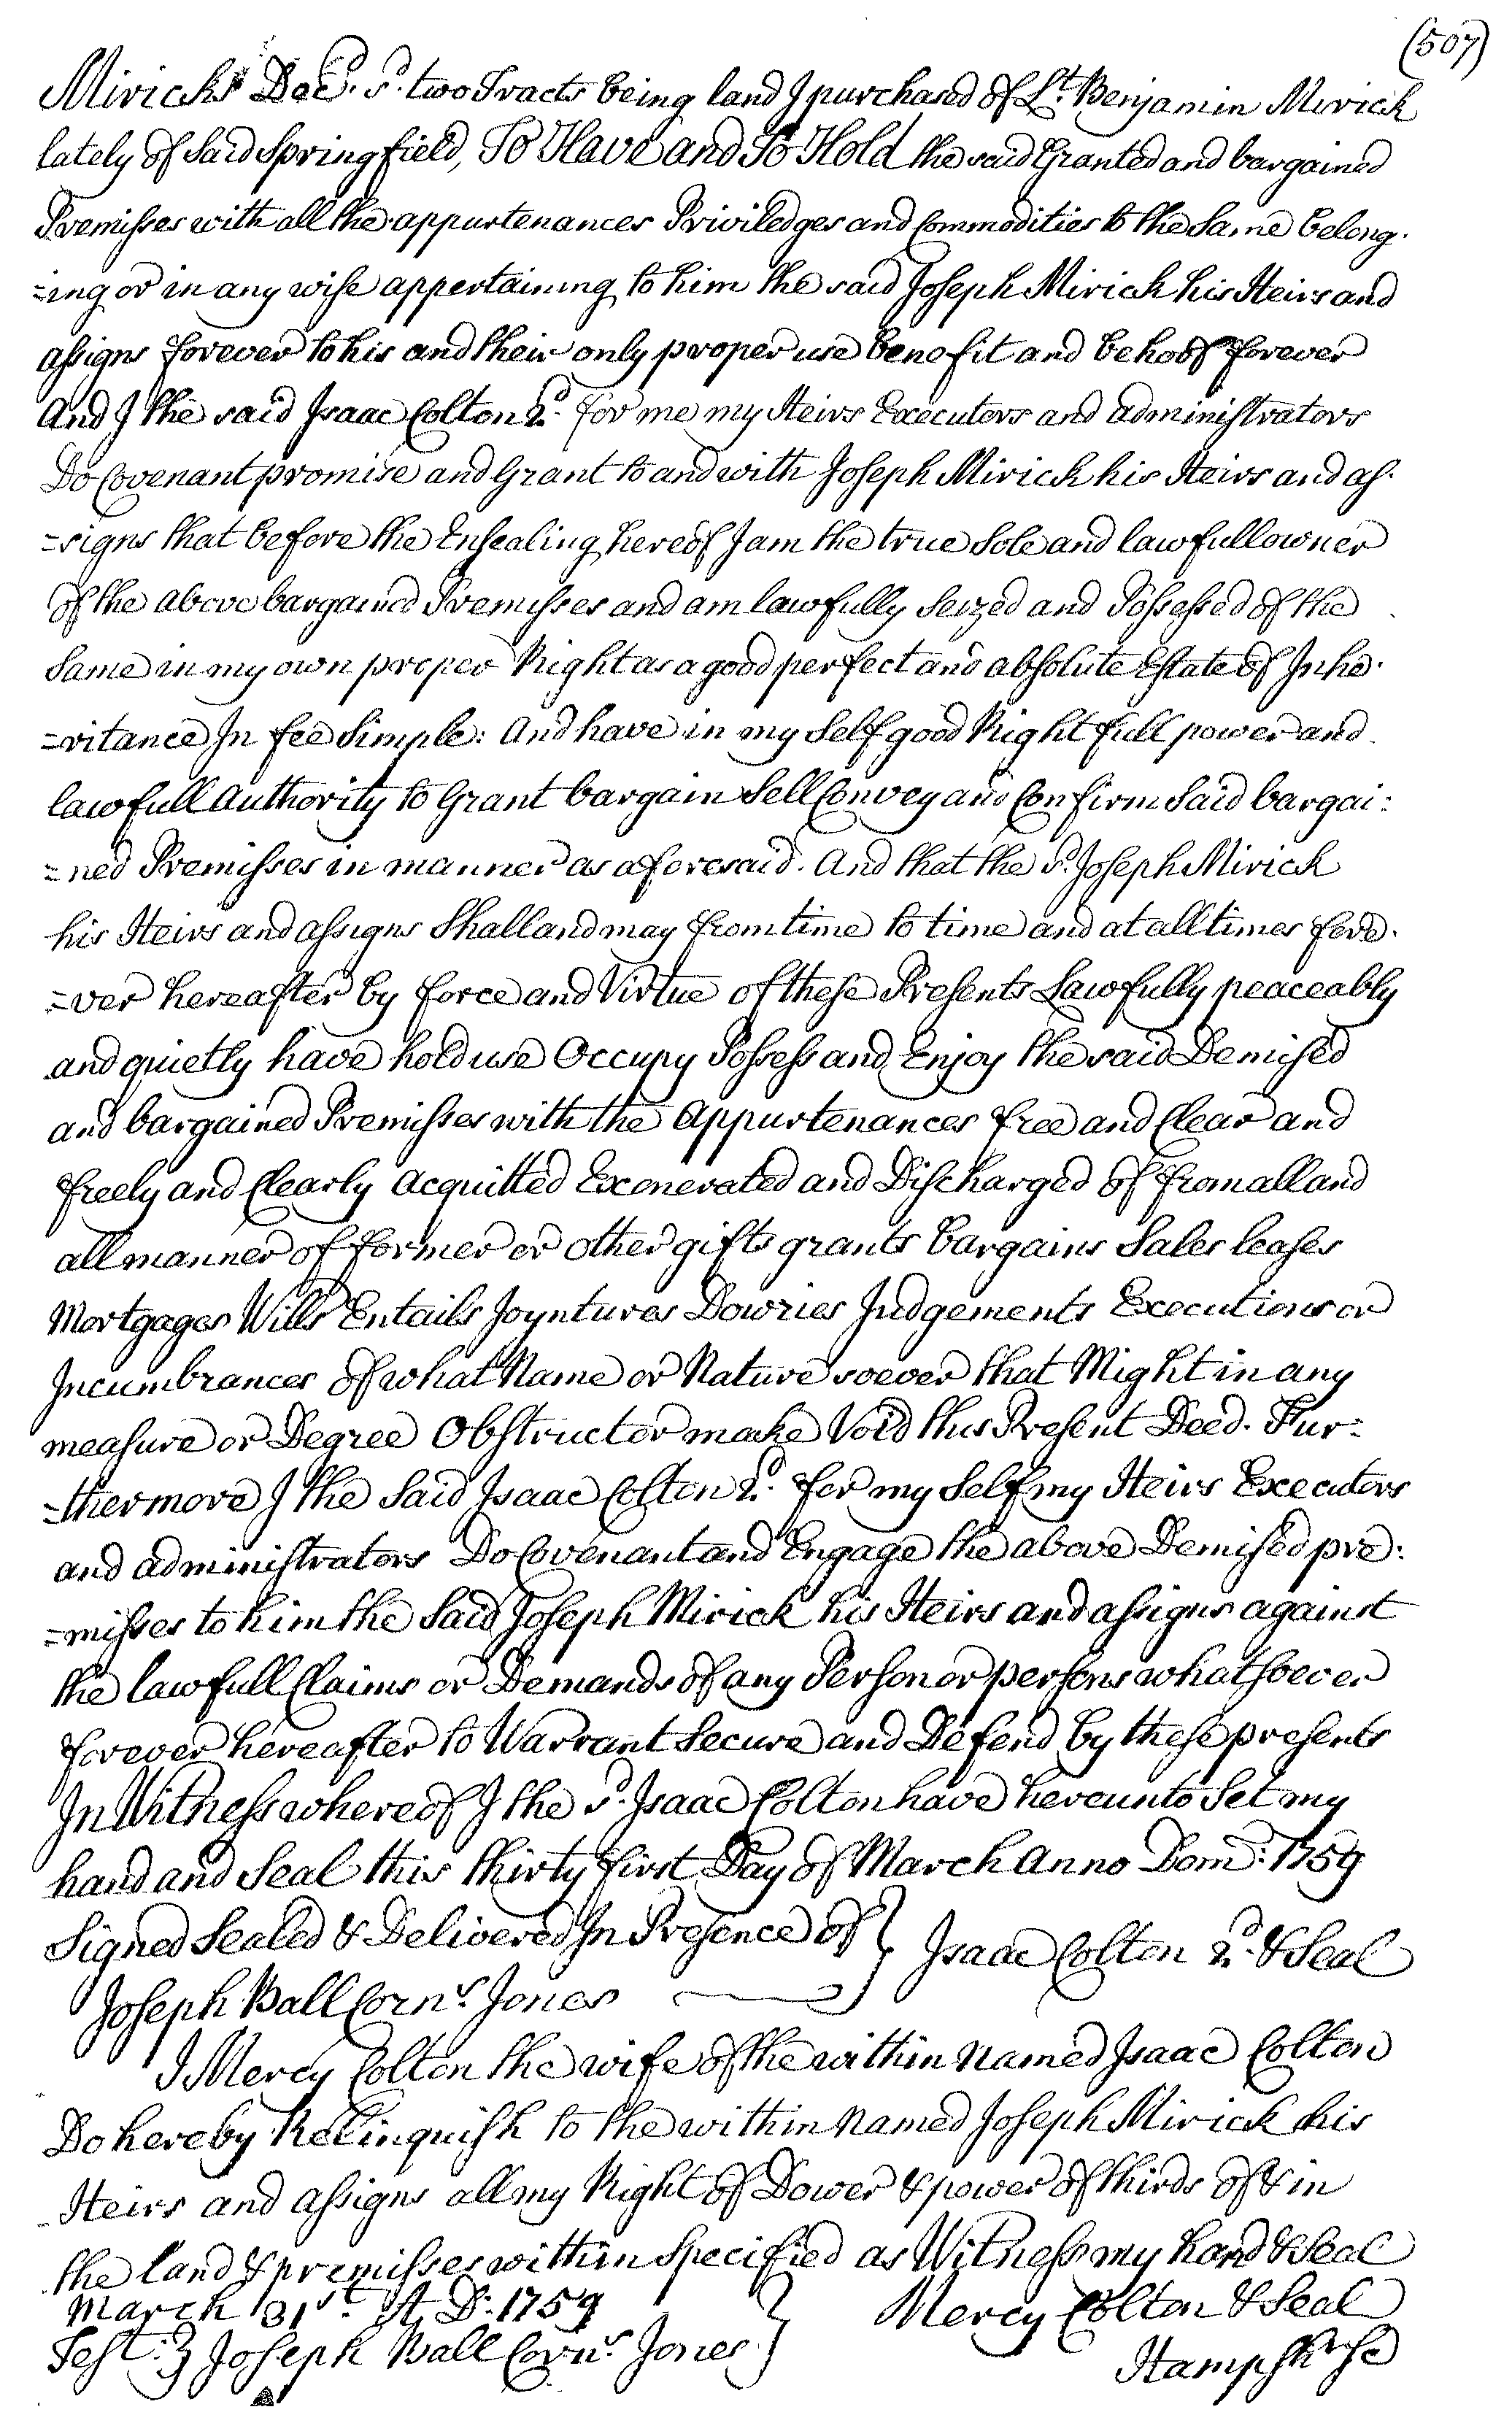 (507)
Miricks Decd. sd. two Tracts being land I purchased of Lt. Benjamin Mirick
lately of Said Springfield, To Have and To Hold the said Granted and bargained
Premisses with all the appurtenances Priviledges and Commodities to the Same belong-
=ing or in any wise appertaining to him the said Joseph Mirick his Heirs and
assigns forever to his and their only proper use benefit and behoof forever
And I the said Isaac Colton 2d. for me my Heirs Executors and administrators
Do Covenant promise and Grant to and with Joseph Mirick his Heirs and as-
=signs that before the Ensealing hereof I am the true Sole and lawfull owner
of the above bargained Premisses and am lawfully Seized and Possessed of the
Same in my own proper Right as a good perfect and absolute Estate of Inhe-
=ritance In fee Simple: And have in my Self good Right full power and
lawfull Authority to Grant bargain Sell Convey and Confirm Said bargai:
=ned Premisses in manner as aforesaid. And that the sd. Joseph Mirick
his Heirs and assigns Shall and may from time to time and at all times fore-
=ver hereafter by force and Virtue of these Presents Lawfully peaceably
and quietly have hold use Occupy Possess and Enjoy the said Demised
and bargained Premisses with the Appurtenances free and Clear and
freely and Clearly Acquitted Exonerated and Discharged of from all and
all manner of former or other gifts grants bargains Sales leases
Mortgages Wills Entails Joyntures Dowries Judgements Executions or
Incumbrances of what Name or Nature soever that Might in any
measure or Degree Obstruct or make Void this Present Deed. Fur=
=thermore I the Said Isaac Colton 2d. for my Self my Heirs Executors
and administrators Do Covenant and Engage the above Demised pre:
=misses to him the Said Joseph Mirick his Heirs and assigns against
the lawfull Claims or Demands of any Person or persons whatsoever
forever hereafter to Warrant Secure and Defend by these presents
In Witness whereof I the sd. Isaac Colton have hereunto Set my
hand and Seal this thirty first Day of March Anno Dom: 1759
Signed Sealed & Delivered In Presence of } Isaac Colton 2d. & Seal
Joseph Ball Corns. Jones
I Mercy Colton the wife of the within named Isaac Colton
Do hereby Relinquish to the within named Joseph Mirick his
Heirs and assigns all my Right of Dower & power of thirds of & in
the land & premisses within Specified as Witness my hand & Seal
March 31st. A. D: 1759 } Mercy Colton & Seal
Test. } Joseph Ball Corns. Jones
Hampshire